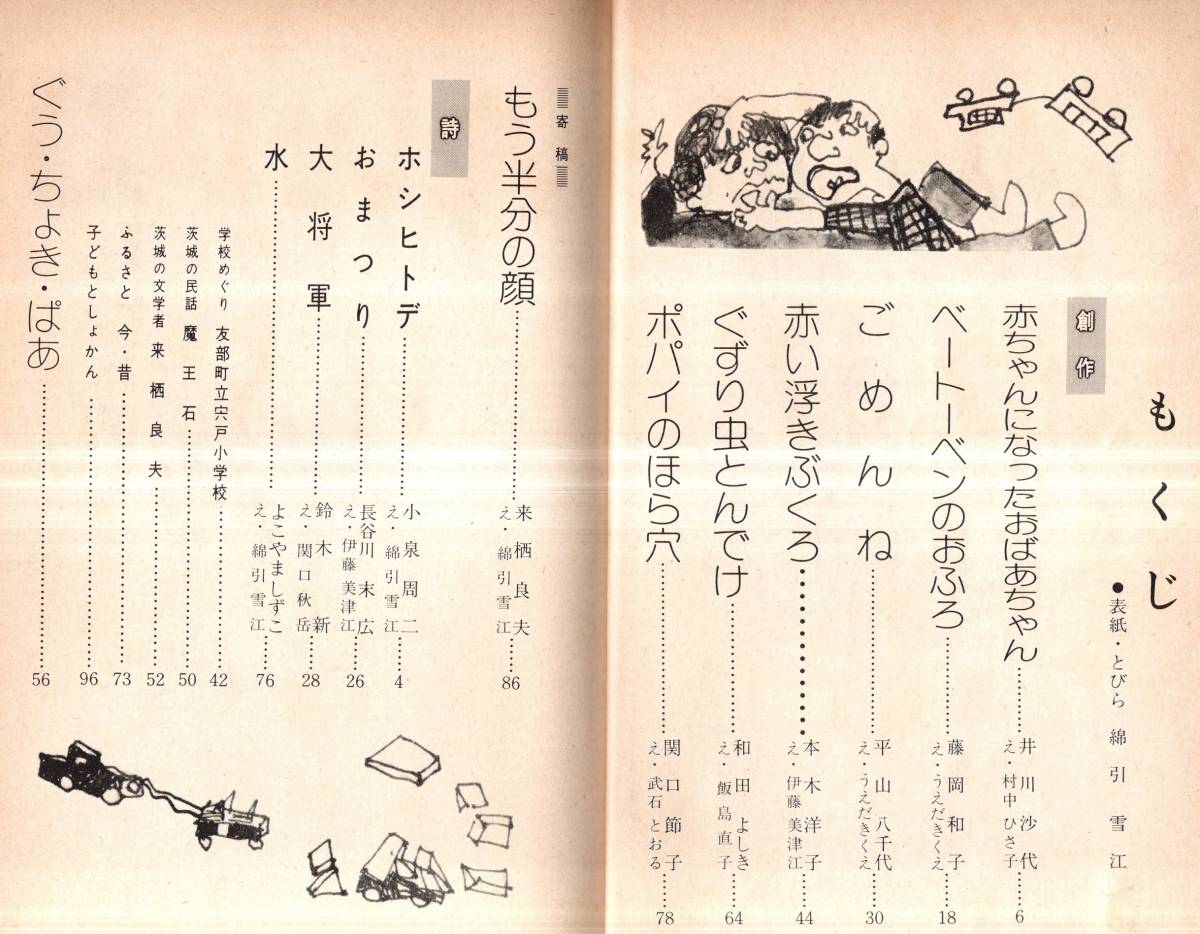 もくじ
●表紙・とびら 綿引雪江
創作
赤ちゃんになったおばあちゃん……井川沙代……6
え・村中ひさ子
ベートーベンのおふろ……藤岡和子……18
え・うえだきくえ
ごめんね……平山八千代……30
え・うえだきくえ
赤い浮きぶくろ……本木洋子……44
え・伊藤美津江
ぐずり虫とんでけ……和田よしき……64
え・飯島直子
ポパイのほら穴……関口節子……78
え・武石とおる
寄稿
もう半分の顔……来栖良夫……86
え・綿引雪江
詩
ホシヒトデ……小泉周二……4
え・綿引雪江
おまつり……長谷川末広……26
え・伊藤美津江
大将軍……鈴木新……28
え・関口秋岳
水……よこやましずこ……76
え・綿引雪江
学校めぐり 友部町立宍戸小学校……42
茨城の民話 魔王石……50
茨城の文学者 来栖良夫……52
ふるさと 今・昔……73
子どもとしょかん……96
ぐう・ちょき・ぱあ……56